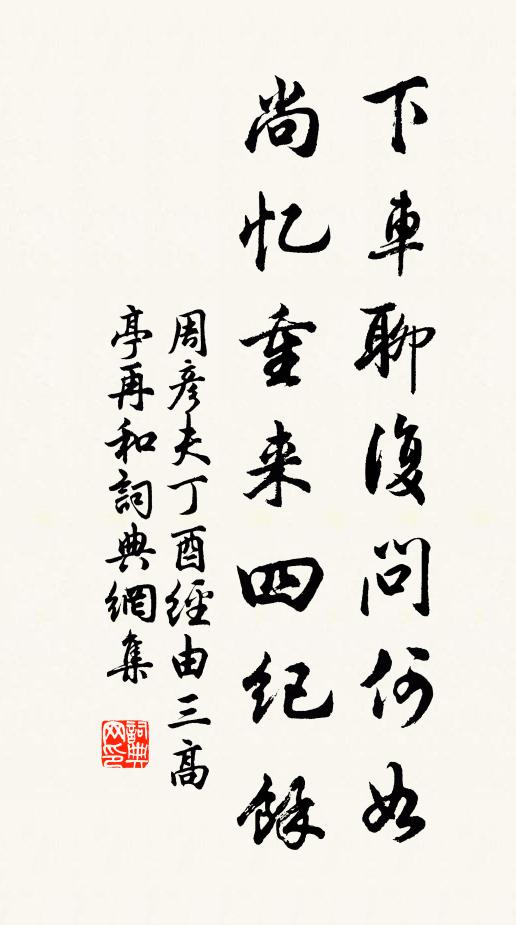 下車聊復問何如
尚忆重来四纪餘
周彥夫丁酉經由三高
亭再和詞典網集
詞典网印